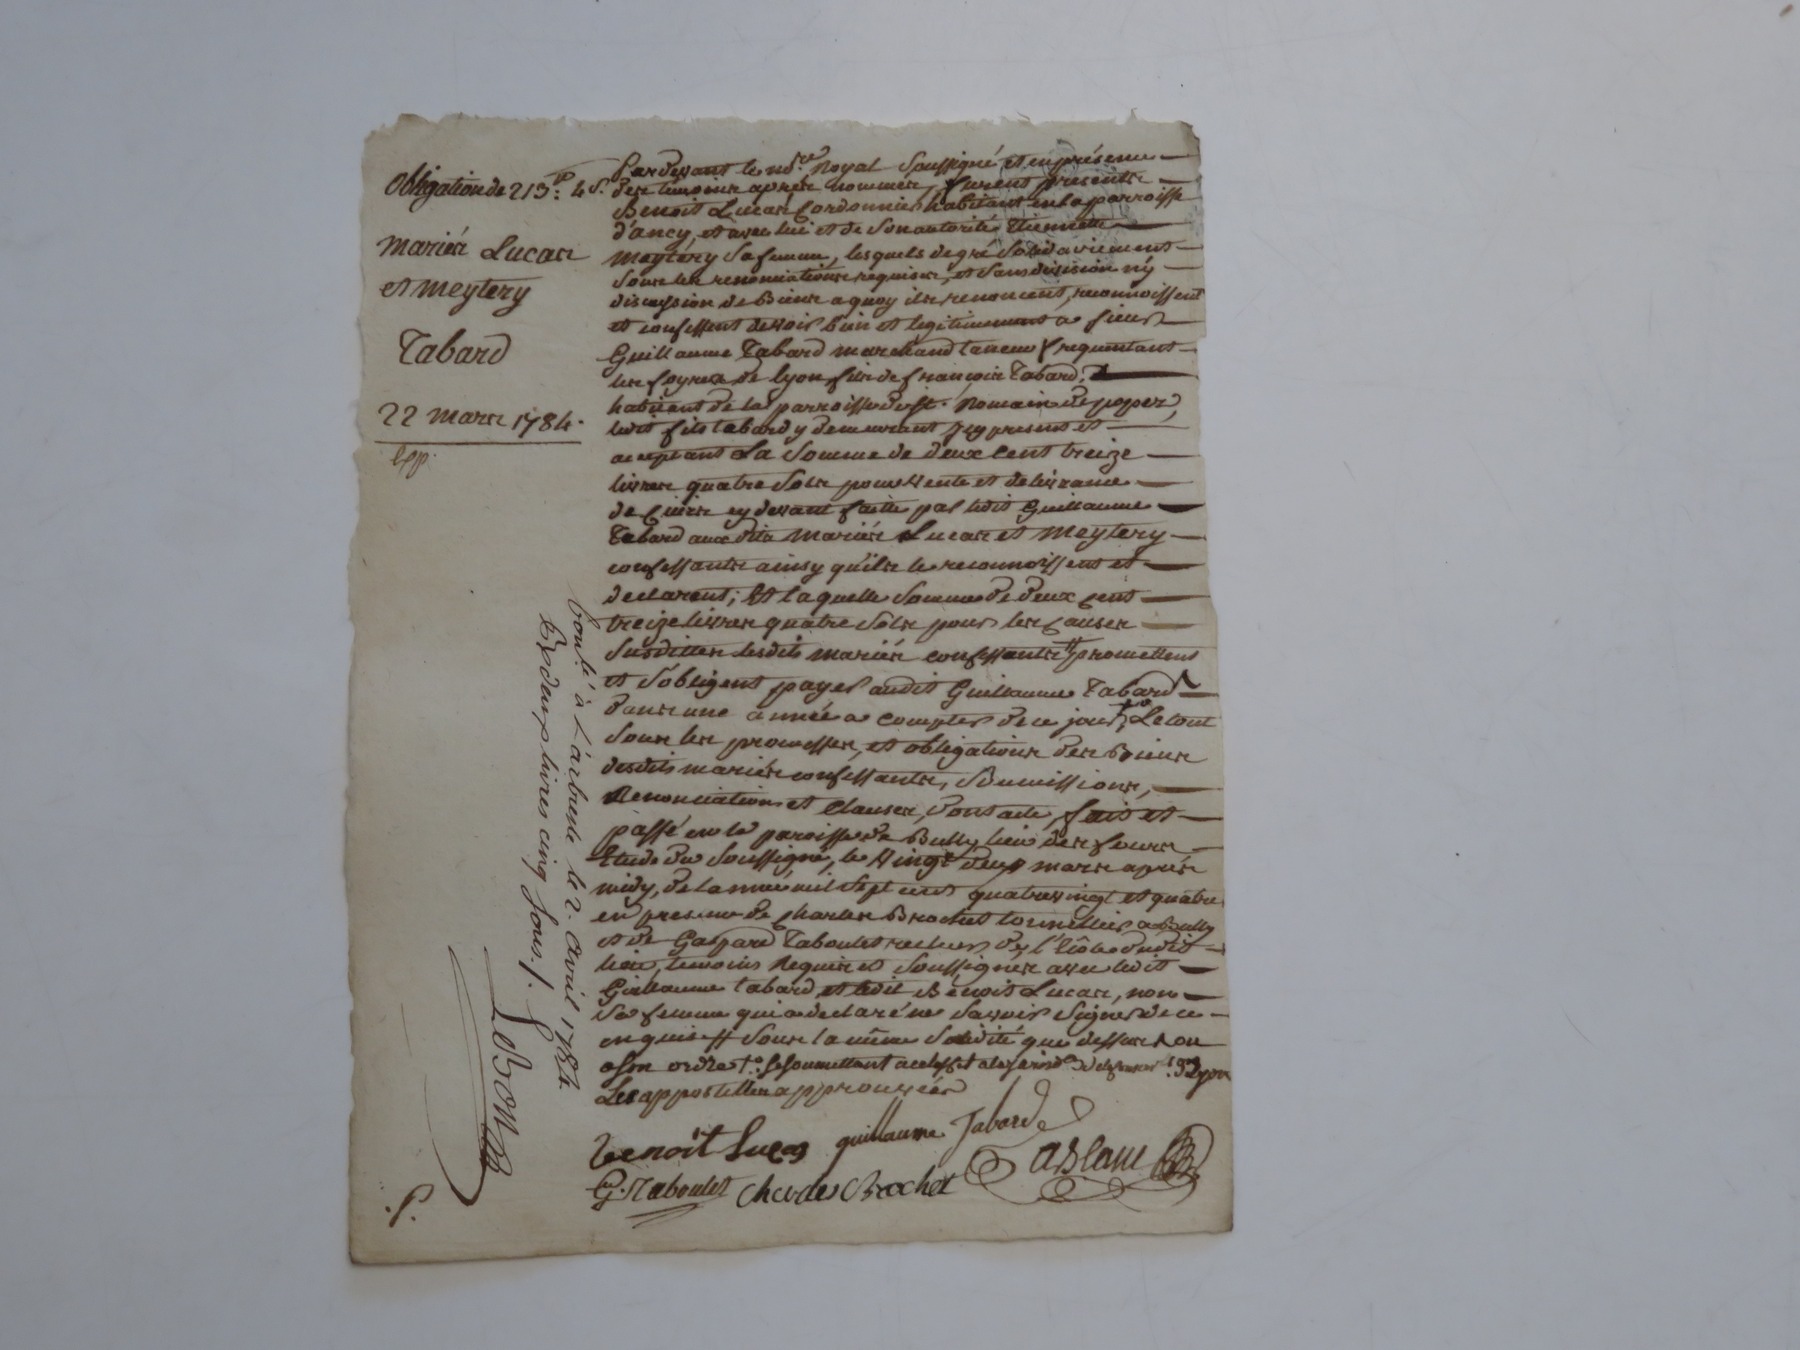 Obligation de 213.tt 4 s.
mariér Lucar
et meytery
Tabard
22 marr 1784.
Exp.
Pardevant le no.re Royal soussigné et en présence
der temoinr aprèr nommér, furent presentr
Benoit Lucar Cordonnier habitant en la parroisse
d'ancy, et avec lui et de son autorité Etiennette
meytery sa femme, lesquels de gré solidairement
sour ler renonciationr requiser, et sans division ny
discussion de Bienr a quoy ilr renoncent, reconnoissent
et confessent devoir bien et legitimement a sieur
Guillaume Tabard marchand taneur frequentant
ler foyrer de lyon, filr de françoir Tabard,
habitant de la parroisse de st. Romain de popey,
ledit fils tabard y demeurant icy present et
acceptant La Somme de deux Cent treize
livrer quatre Solr pour vente et delivrance
de Cuirr cy devant faitte par ledit Guillaume
Tabard aux dits mariér Lucar et Meytery
confessantr ainsy qu'ilr le reconnoissent et
declarent; Et laquelle somme de deux cent
treize livrer quatre Solr pour ler Causer
Susditter lesdits mariér confessantr # promettent
et s'obligent payer audit Guillaume Tabard
danr une année a compter de ce jour, Le tout
Sour ler promesser, et obligationr der Bienr
desdits mariér confessantr, Soumissionr,
Renonciations et Clauser, dont acte, fait et
passé en la paroisse de Bully, lieu der fourr
Etude du soussigné, le vingt deux marr aprér
midy, de l'année mil sept cent quatre vingt et quatre
en presence de Charler Brochet tonnellier a Bully
et de Gaspard Taboulet recteur de l'Ecole dudit
lieu, temoins Requir et soussignér avec ledit
Guillaume tabard, et ledit Benoit Lucar, non
sa femme qui a declaré ne savoir signer de ce
enquise # sour la même solidité que dessur
a son ordre
Ler appostiller approuvéer
Benoît Lucas guillaume Tabard
G. Taboulet Charles Brochet
Conlé à L'arbresle le 2. avril 1784
Reçu deux livres cinq sous.